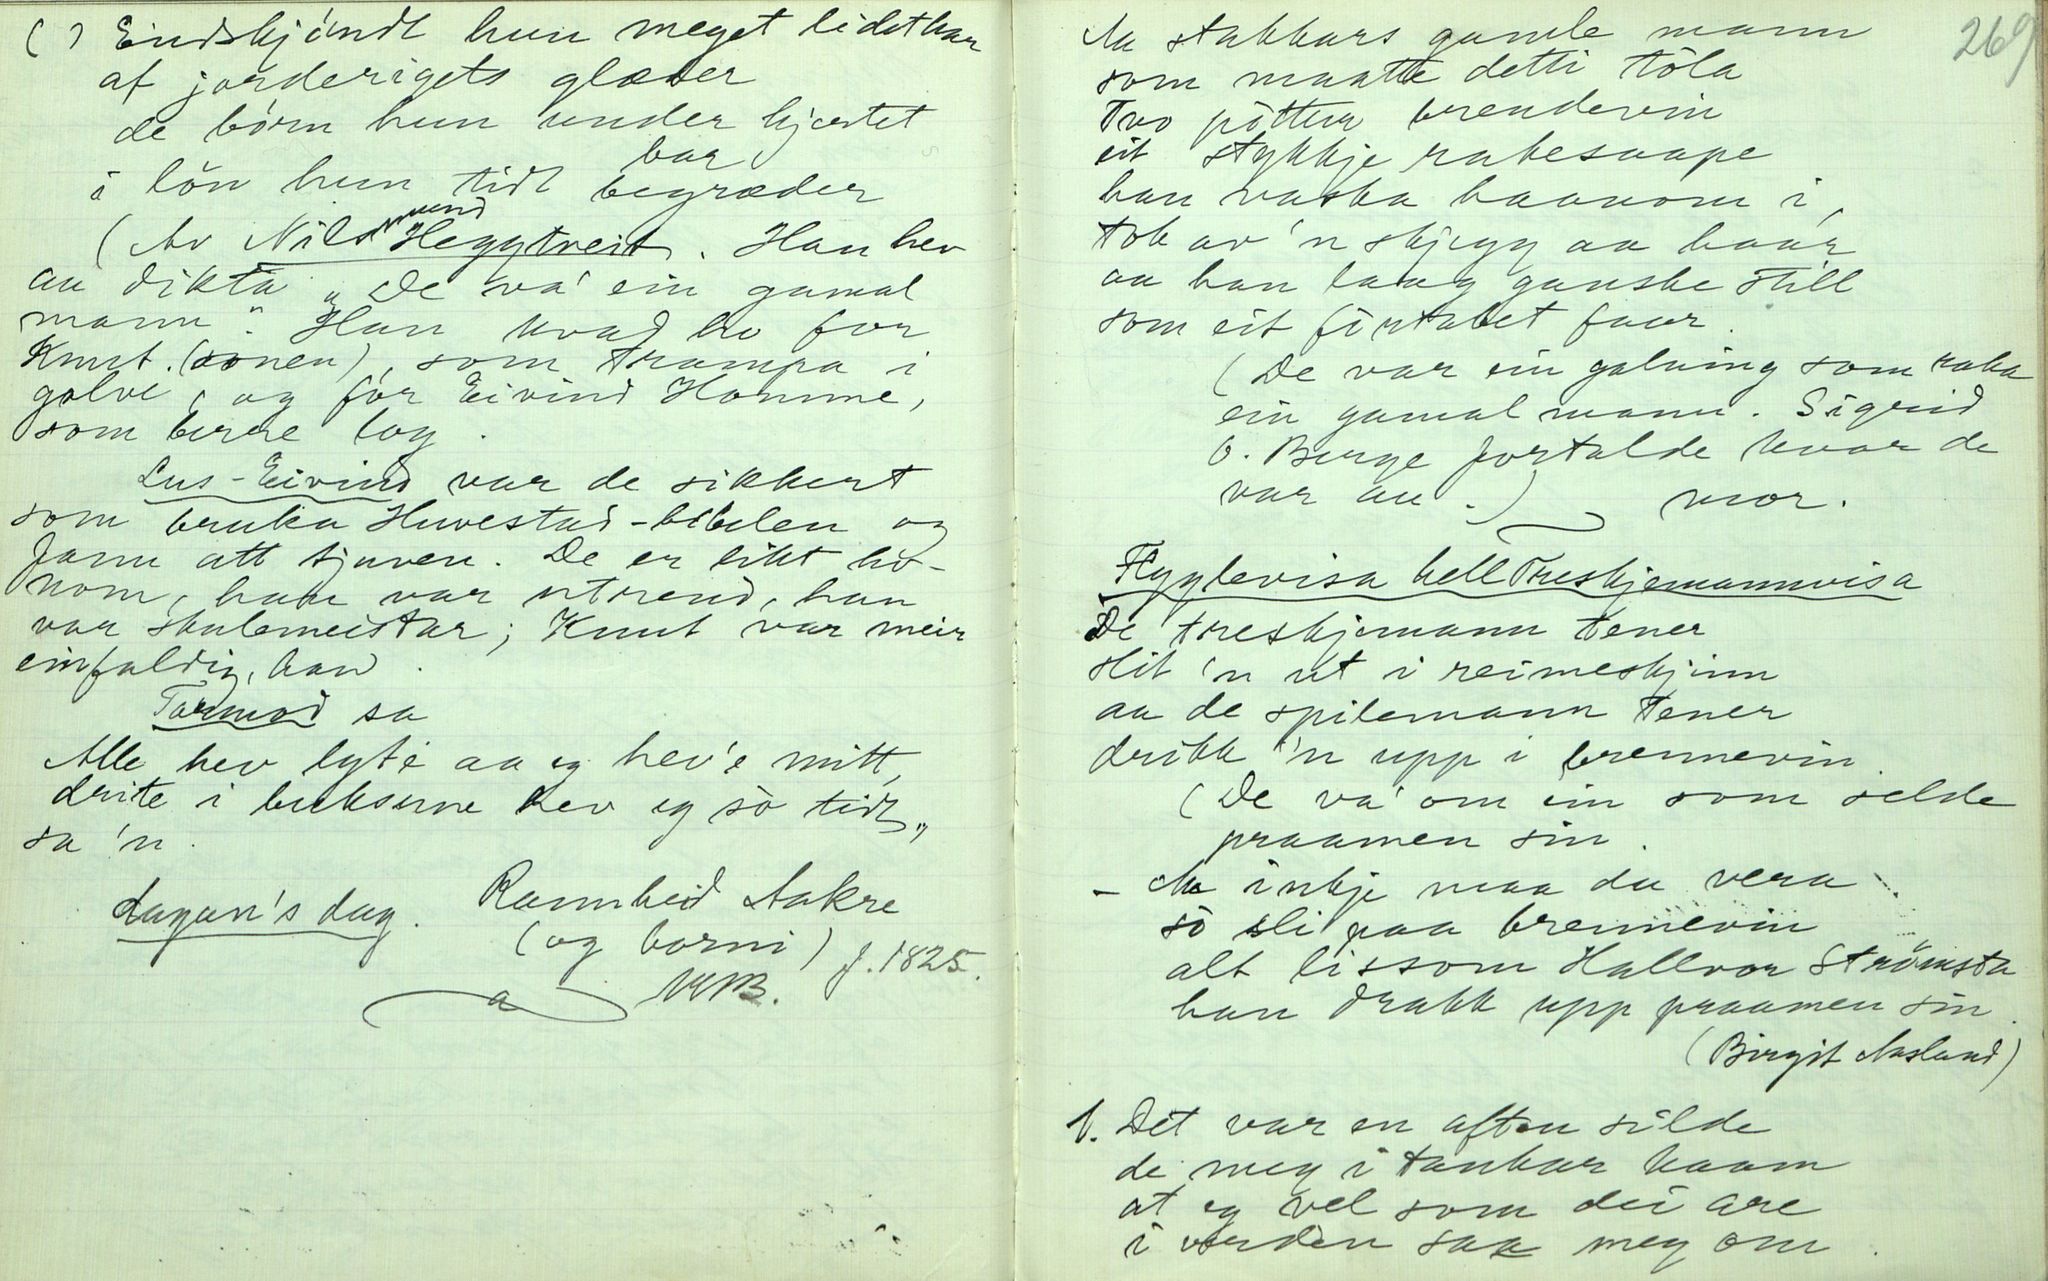 ( ) Endskjöndt hun meget lidet har
af jorderigets glæder
de börn hun under hjertet
bar
i lön hun tidt begræder
(Av Nils Heggtveit. Han hev
aa dikta „De va' ein gamal
mann". Han kvad ho for
Knut (sonen), som trampa i
golve, og for Eivind Homme,
som berre log.
Lus-Eivind var de sikkert
som bruka Huvestad-bibelen og
fann att tjuven. De er likt ho-
nom, han var utrend, han
var skulemeistar; Knut var meir
einfaldig, han.
Tarmod sa
Alle hev lyte aa eg hev'e mitt,
drite i buksune hev eg so tidt"
sa 'n.
Lagan's dag. Rannheid Aakre
(og borni) f. 1825.
269
Aa stakkars gamle mann
som maatte detti töla
Tvo pötter brendevin
eit stykkje rakesaape
han vaska haanom i,
tok av'n skjegg aa haar
aa han laag ganske still
som eit fortabet faar.
(De var ein galning som raka
ein gamal mann. Sigrid
O. Berge fortalde kvar de
var au.) mor.
Flyglevisa hell Treskjemannvisa
De treskjemann tener
slit 'n ut i reimeskjinn
aa de spilemann tener
drikk 'n upp i brennevin.
(De va' om ein som selde
praamen sin.
- Aa inkje maa du vera
so sli paa brennevin
alt lissom Hallvor Strömsta
han drakk upp praamen sin.
(Birgit Aasland)
1. Det var en aften silde
de meg i tankar kaam
at eg vel som dei are
i verden saa meg om.